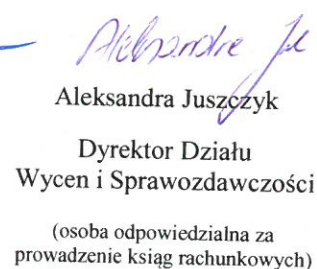 Aleksandra Ju
Aleksandra Juszczyk
Dyrektor Działu
Wycen i Sprawozdawczości
(osoba odpowiedzialna za
prowadzenie ksiąg rachunkowych)